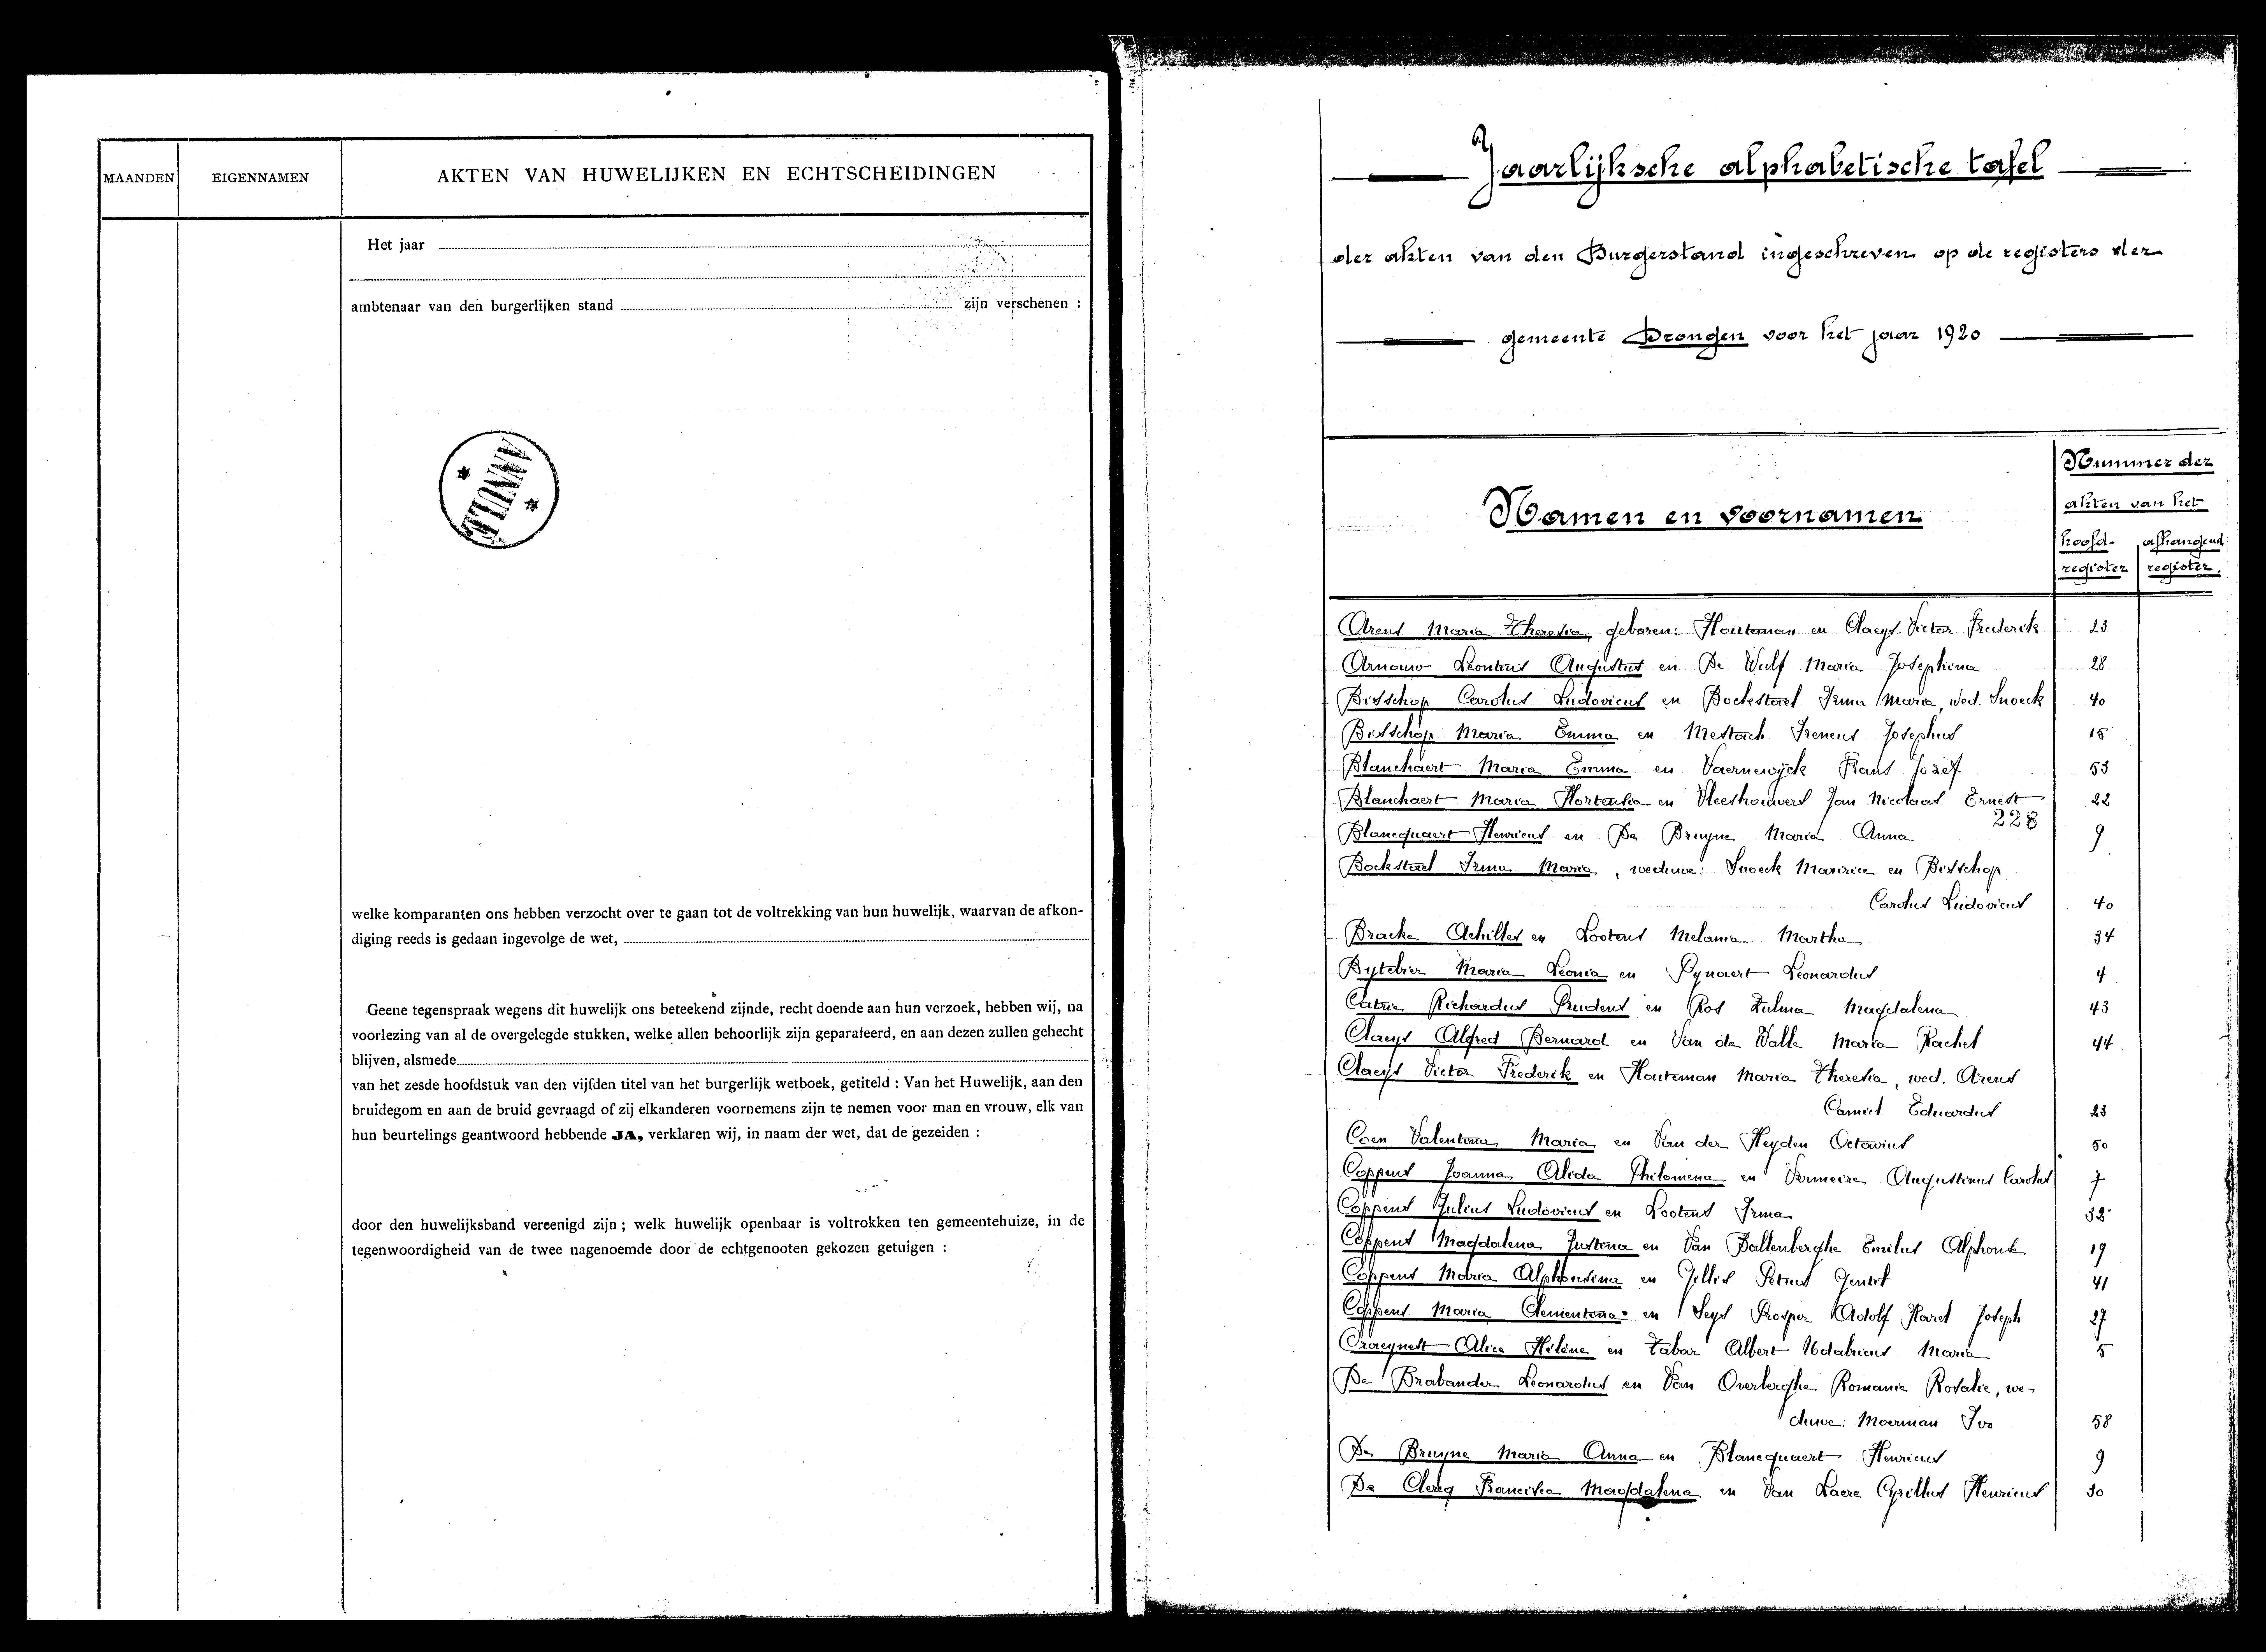 MAANDEN
EIGENNAMEN
AKTEN VAN HUWELIJKEN EN ECHTSCHEIDINGEN
Het jaar
ambtenaar van den burgerlijken stand zijn verschenen :
ANNULÉ
welke komparanten ons hebben verzocht over te gaan tot de voltrekking van hun huwelijk, waarvan de afkon-
diging reeds is gedaan ingevolge de wet,
Geene tegenspraak wegens dit huwelijk ons beteekend zijnde, recht doende aan hun verzoek, hebben wij, na
voorlezing van al de overgelegde stukken, welke allen behoorlijk zijn geparafeerd, en aan dezen zullen gehecht
blijven, alsmede
van het zesde hoofdstuk van den vijfden titel van het burgerlijk wetboek, getiteld : Van het Huwelijk, aan den
bruidegom en aan de bruid gevraagd of zij elkanderen voornemens zijn te nemen voor man en vrouw, elk van
hun beurtelings geantwoord hebbende JA, verklaren wij, in naam der wet, dat de gezeiden :
door den huwelijksband vereenigd zijn ; welk huwelijk openbaar is voltrokken ten gemeentehuize, in de
tegenwoordigheid van de twee nagenoemde door de echtgenooten gekozen getuigen :
Jaarlijksche alphabetische tafel
der akten van den Burgerstand ingeschreven op de registers der
gemeente Drongen voor het jaar 1920
Namen en voornamen
Nummer der
akten van het
hoofd- afhangend
register register.
Arens Maria Theresia, geboren: Houteman en Claeys Victor Frederik 23
Arnouw Leontius Augustus en De Wulf Maria Josephina 28
Bisschop Carolus Ludovicus en Bockstael Irma Maria, wed. Snoeck 40
Bisschop Maria Emma en Mestach Ireneus Josephus 15
Blanchaert Maria Emma en Vaernewijck Frans Jozef 53
Blanchaert Maria Hortensia en Vleeshouwers Jan Nicolaas Ernest 22
228
Blancquaert Henricus en De Bruyne Maria Anna 9
Bockstael Irma Maria, weduwe: Snoeck Maurice en Bisschop
Carolus Ludovicus 40
Bracke Achilles en Lootens Melania Martha 34
Bytebier Maria Leonia en Pynaert Leonardus 4
Catrie Richardus Prudens en Ros Zulma Magdalena 43
Claeys Alfred Bernard en Van de Walle Maria Rachel 44
Claeys Victor Frederik en Houteman Maria Theresia, wed. Arens
Camiel Eduardus 23
Coen Valentina Maria en Van der Heyden Octavius 50
Coppens Joanna Alida Philomena en Vermeire Augustinus Carolus 7
Coppens Julius Ludovicus en Lootens Irma 32
Coppens Magdalena Justina en Van Ballenberghe Emilus Alphonse 19
Coppens Maria Alphonsina en Gillis Petrus 41
Coppens Maria Clementina en Seys Prosper Adolf Karel Joseph 27
Craeynest Alice Hélène en Tabar Albert Maria 5
De Brabander Leonardus en Van Overberghe Romanie Rosalie, we-
duwe: Moerman Ivo 58
De Bruyne Maria Anna en Blancquaert Henricus 9
De Clercq Francisca Magdalena en Van Laere Cyrillus Henricus 30